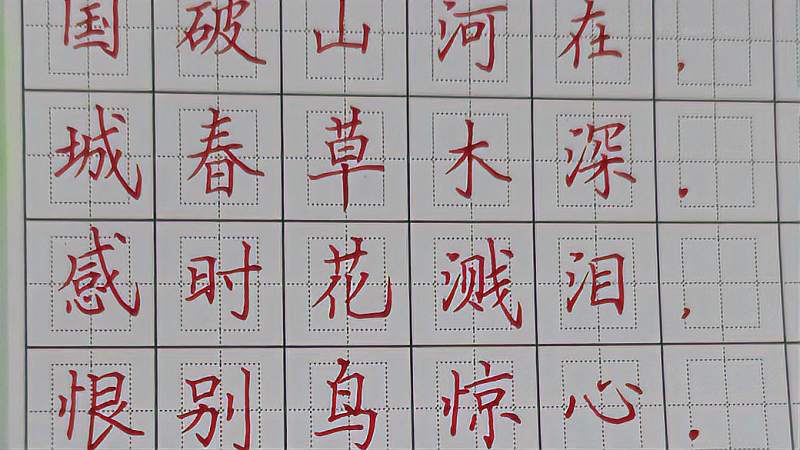 国破山河在，
城春草木深．
感时花溅泪，
恨别鸟惊心．